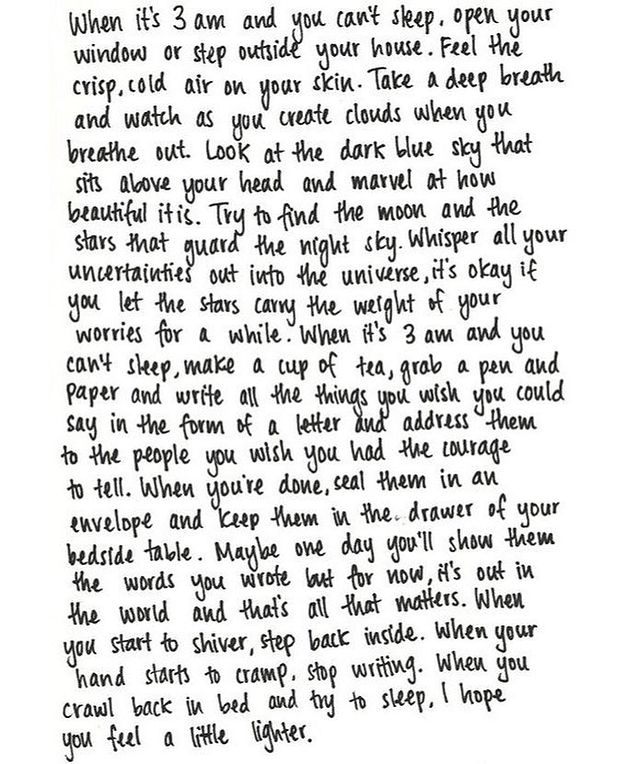 When it's 3 am and you can't sleep, open your
window or step outside your house. Feel the
crisp, cold air on your skin. Take a deep breath
and watch as you create clouds when you
breathe out. Look at the dark blue sky that
sits above your head and marvel at how
beautiful it is. Try to find the moon and the
stars that guard the night sky. Whisper all your
uncertainties out into the universe, it's okay if
you let the stars carry the weight of your
worries for a while. When it's 3 am and you
can't sleep, make a cup of tea, grab a pen and
paper and write all the things you wish you could
say in the form of a letter and address them
to the people you wish you had the courage
to tell. When you're done, seal them in an
envelope and keep them in the drawer of your
bedside table. Maybe one day you'll show them
the words you wrote but for now, it's out in
the world and that's all that matters. When
you start to shiver, step back inside. When your
hand starts to cramp, stop writing. When you
crawl back in bed and try to sleep, I hope
you feel a little lighter.